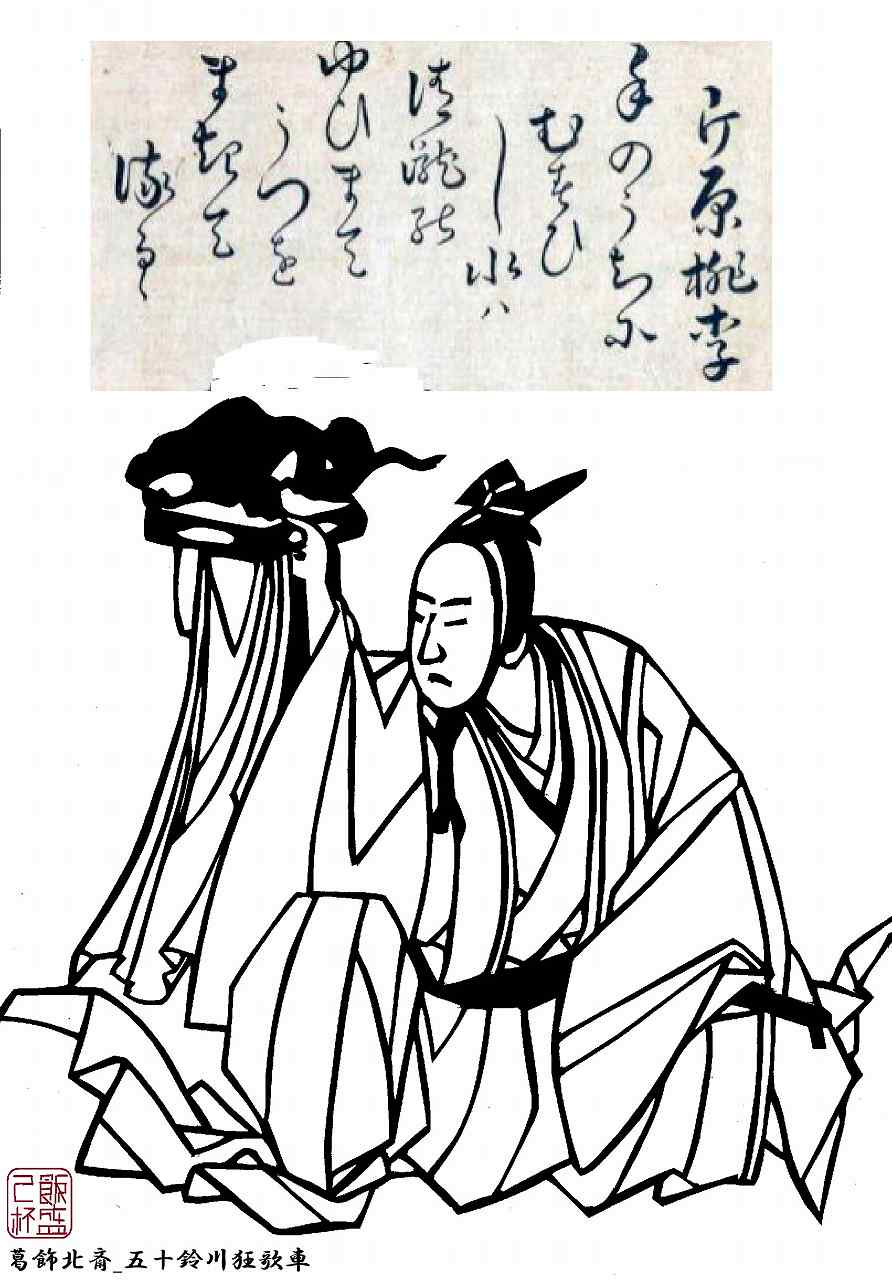 原桃李
手のうちに
むすひ
し水ハ
清瀧の
ゆひまて
うつを
飯盛
己杯
葛飾北斎_五十鈴川狂歌車